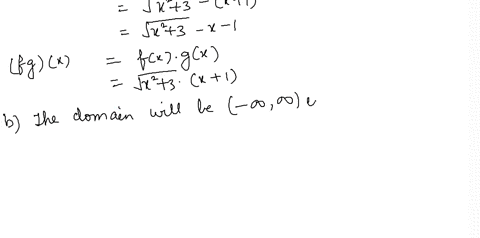 = √x²+3 - (x+1)
= √x²+3 - x - 1
(fg)(x) = f(x)·g(x)
= √x²+3 · (x+1)
b) The domain will be (-∞, ∞)